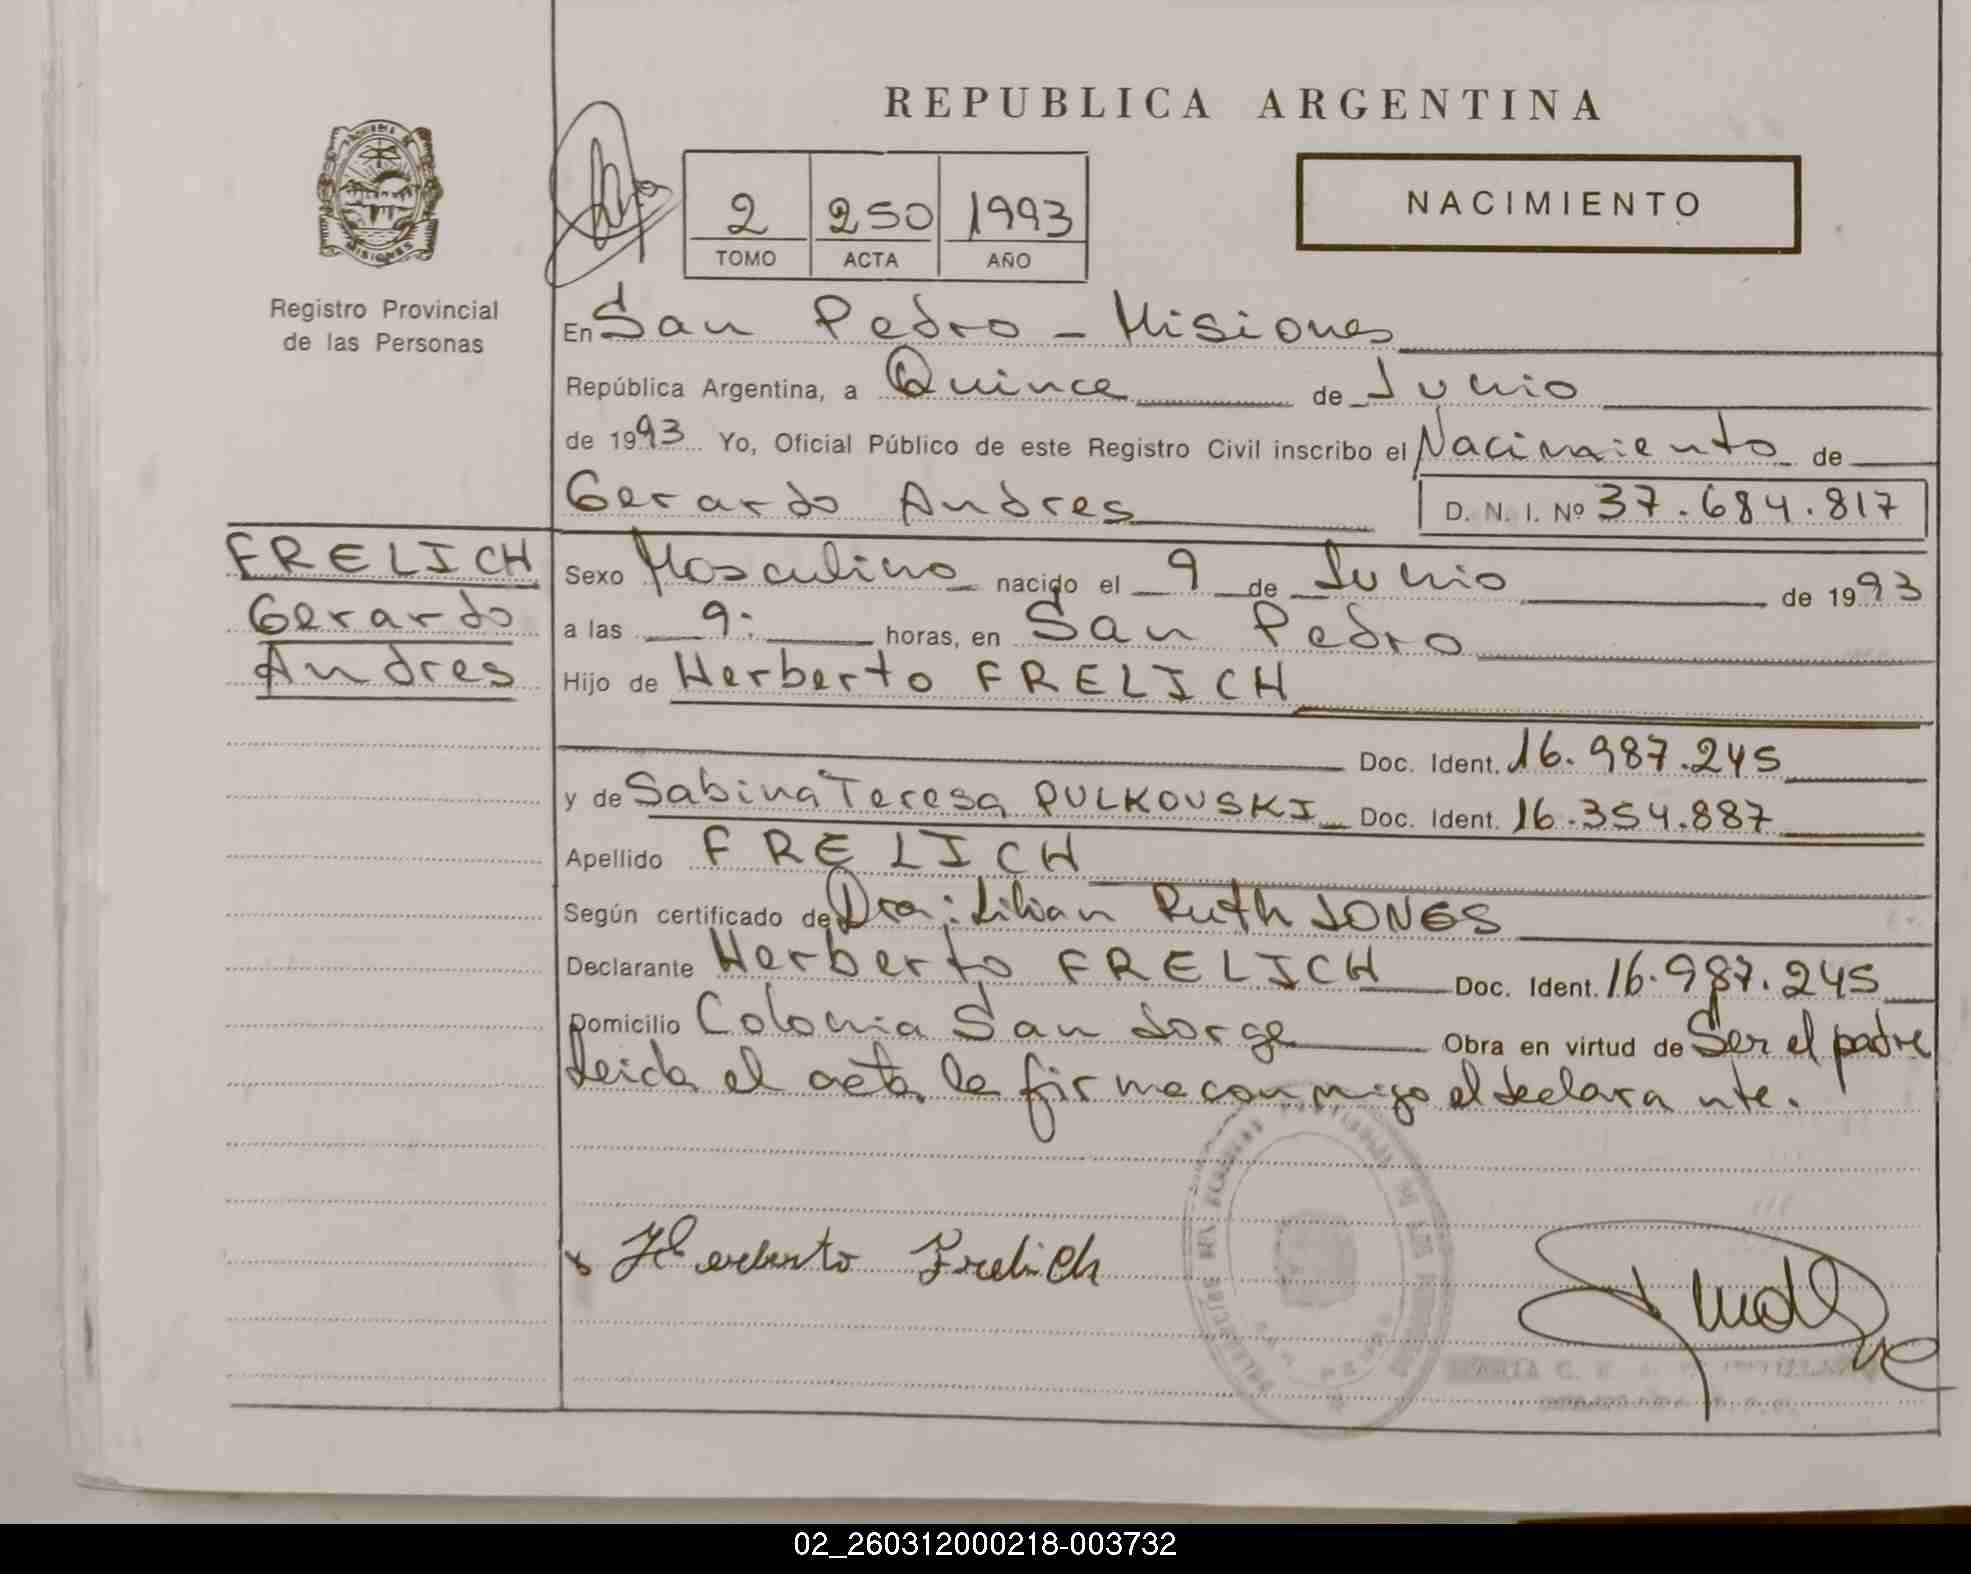 REPUBLICA ARGENTINA
NACIMIENTO
2 250 1993
TOMO ACTA AÑO
MISIONES
Registro Provincial
de las Personas
En San Pedro - Misiones
República Argentina, a Quince de Junio
de 1993 Yo, Oficial Público de este Registro Civil inscribo el Nacimiento de
Gerardo Andres D. N. I. Nº 37.684.817
FRELICH
Gerardo
Andres
Sexo Masculino nacido el 9 de Junio de 1993
a las 9: horas, en San Pedro
Hijo de Herberto FRELICH
Doc. Ident. 16.987.245
y de Sabina Teresa PULKOUSKI Doc. Ident. 16.354.887
Apellido FRELICH
Según certificado de Dra: Lilian Ruth JONES
Declarante Herberto FRELICH Doc. Ident. 16.987.245
Domicilio Colonia San Jorge Obra en virtud de Ser el padre
Leida el acta la firma conmigo el declarante.
x Herberto Frelich
MARIA C.
02_260312000218-003732